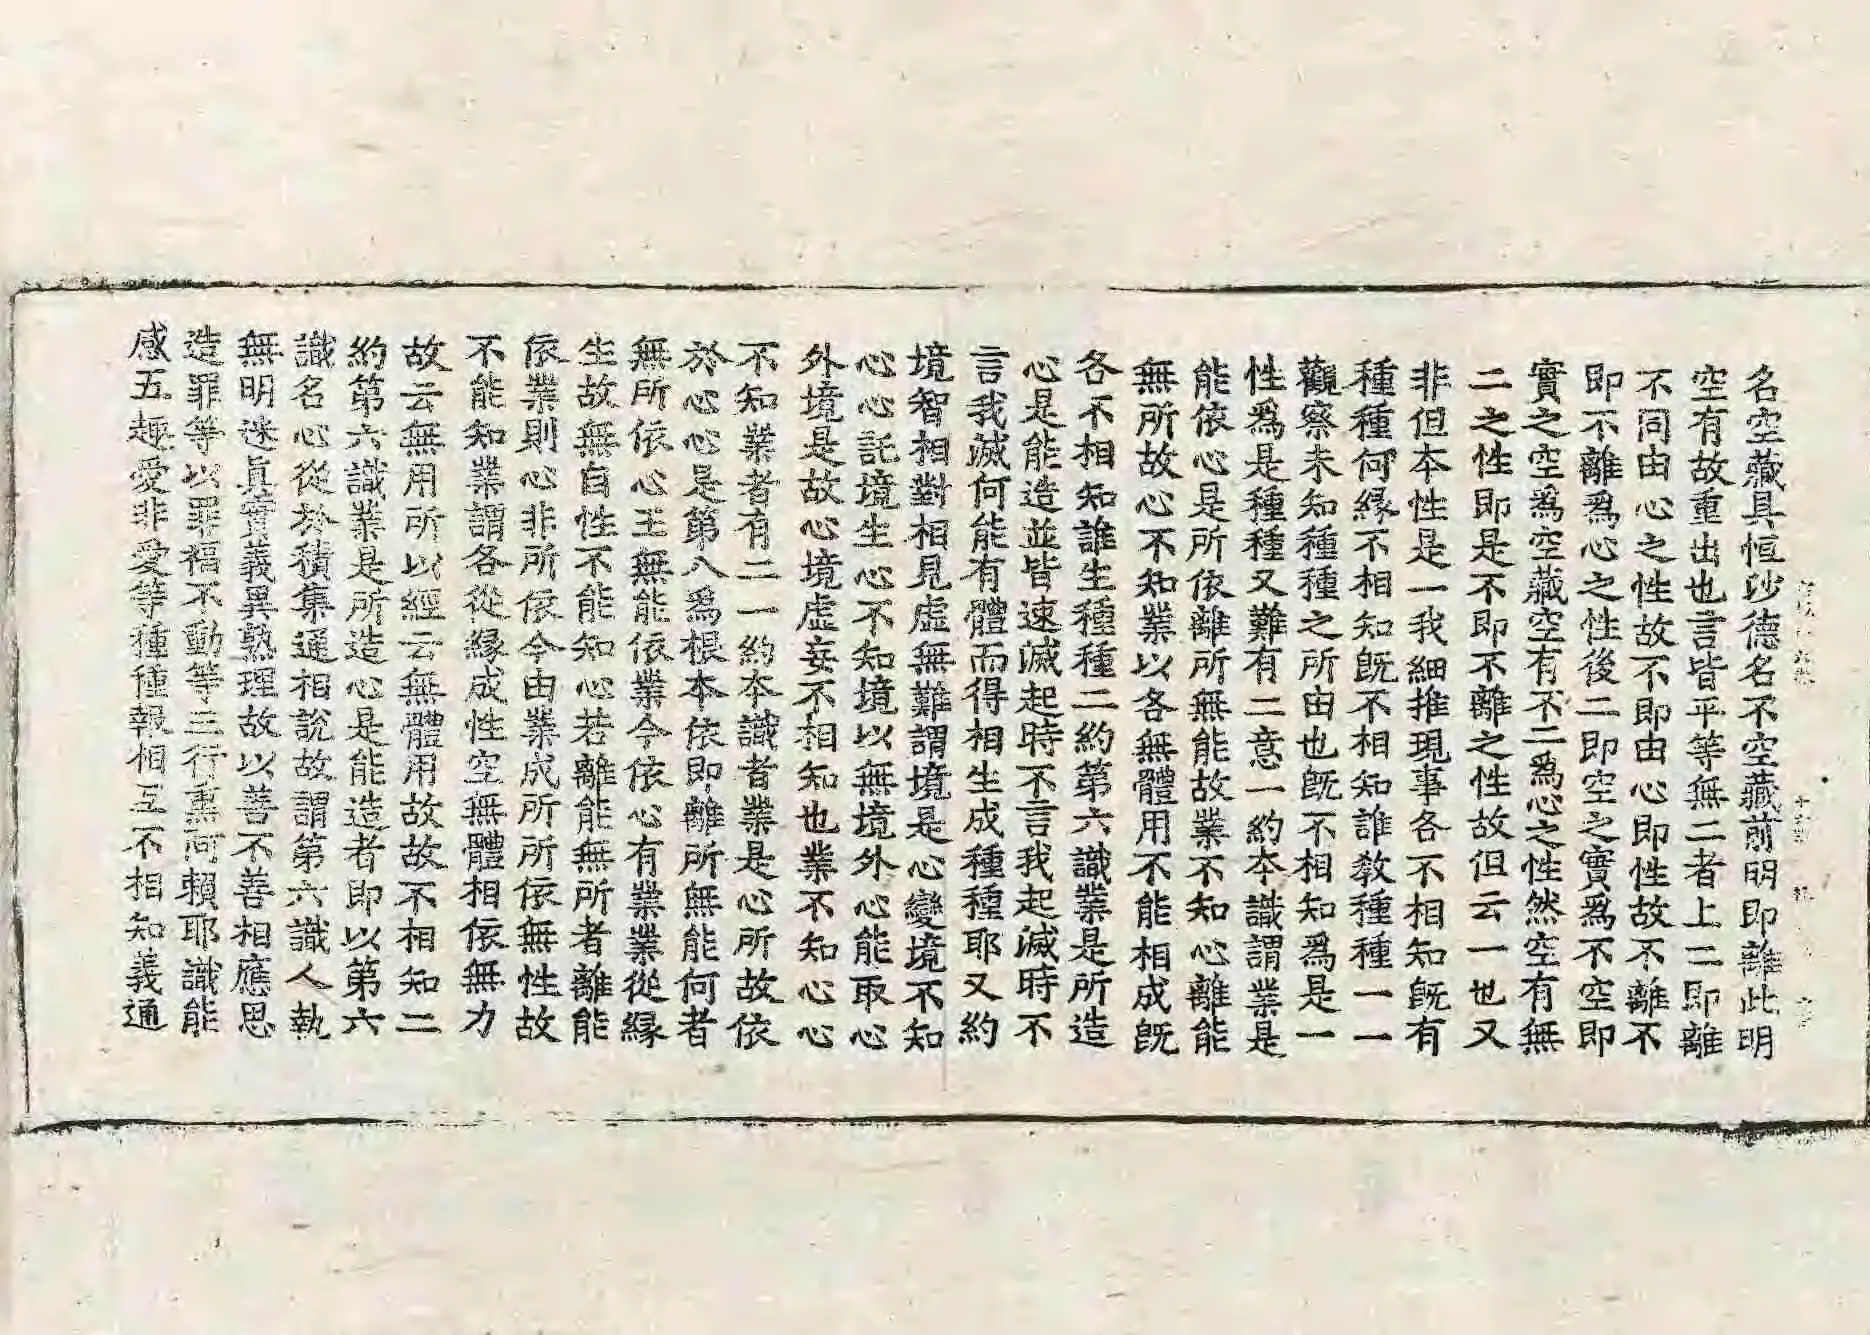 名空藏具恒沙德名不空藏前明即離此明
空有故重出也言皆平等無二者上二即離
不同由心之性故不即由心即性故不離不
即不離爲心之性後二即空之實爲不空即
實之空爲空藏空有不二爲心之性然空有無
二之性即是不即不離之性故但云一也又
非但本性是一我細推現事各不相知既有
種種何緣不相知既不相知誰教種種一一
觀察未知種種之所由也既不相知爲是一
性爲是種種又難有二意一約本識謂業是
能依心是所依離所無能故業不知心離能
無所故心不知業以各無體用不能相成既
各不相知誰生種種二約第六識業是所造
心是能造並皆速滅起時不言我起滅時不
言我滅何能有體而得相生成種種耶又約
境智相對相見虛無難謂境是心變境不知
心心託境生心不知境以無境外心能取心
外境是故心境虛妄不相知也業不知心心
不知業者有二一約本識者業是心所故依
於心心是第八爲根本依即離所無能何者
無所依心王無能依業今依心有業業從緣
生故無自性不能知心若離能無所者離能
依業則心非所依今由業成所所依無性故
不能知業謂各從緣成性空無體相依無力
故云無用所以經云無體用故故不相知二
約第六識業是所造心是能造者即以第六
識名心從於積集通相說故謂第六識人執
無明迷眞實義異熟理故以善不善相應思
造罪等以罪福不動等三行熏阿賴耶識能
感五趣愛非愛等種種報相互不相知義通